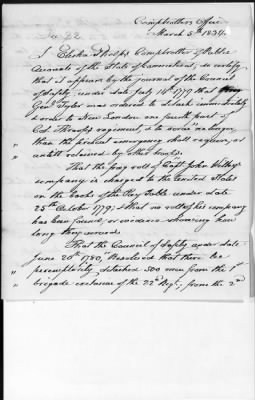 Comptrollers Office
March 5th 1834.
I Elisha Phelps Comptroller of Public
Accounts of the State of Connecticut, do certify
that it appears by the journal of the Council
of Safety, under date July 14th 1779 that
Genl Tyler was ordered to detach immediately
& order to New London one fourth part of
Col. regiment, & to serve no longer
than the present emergency shall require, or
untill relieved by other troops.
" That the pay roll of Capt. John
company is charged to the United States
on the books of the Pay Table under date
25th October 1779; & that no roll of his company
has been found, or evidence showing how
long they served.
" That the Council of Safety under date
" June 20th 1780, "Resolved that there be
" peremptorily detached 500 men from the 1st
" brigade exclusive of the 22d Regt; from the 2nd